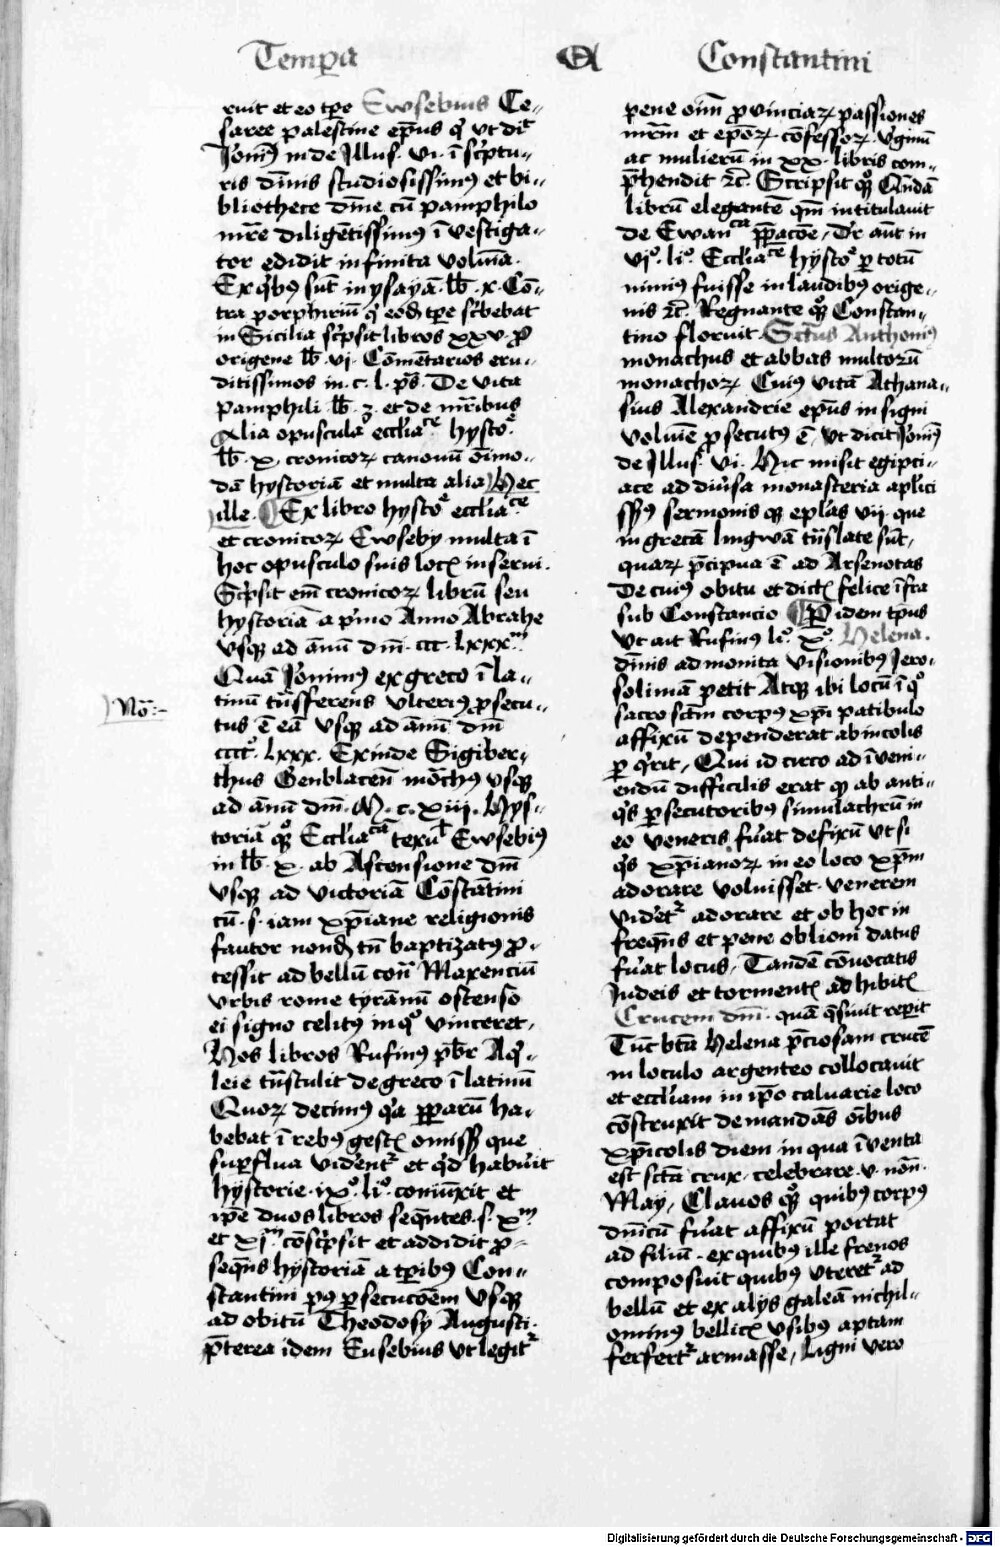 Tempa A Constantini
ruit et eo tp̄e Ewsebius Ce-
saree palestine ep̄us qͥ vt dicͭ
Jeroniͫꝰ in de Illusͭ vi· ī sc̄ptu-
ris diuinis studiosissimꝰ et bi-
bliothece diuīe cū pamphilo
mr̄e diligētissimꝰ ī vestiga-
tor edidit infinita volumīa·
Ex qͥbꝰ sūt in ysayā· lib̄· x· Cō-
tra porphiriū qͥ eodē tp̄e sc̄bebat
in Sicilia sc̄psit libros xxv· ꝓ
origene lib̄· vi· Comētarios eru-
ditissimos in· c· l· ps̄· De vita
pamphili lib̄· 3· et de mr̄ibus
Alia opuscula eccl̄iaͨᵉ hystoͬᵉ
lib̄· x, cronicoꝝ canonū oīmo-
dā hystoriā et multa alia Hec
ille· Ex libro hystoͬᵉ eccl̄iaͨᵉ
et cronicoꝝ Ewseby multa ī
hoc opusculo suis locꝭ inserui·
Sc̄psit em̄ cronicoꝝ librū seu
hystoriā a pͥmo Anno Abrahe
vsqꝫ ad ānū dm̄· ccc· lxxxᵐ·
Quā Jeronimꝰ ex greco ī la-
tinū trāsferens vlteriꝰ ꝓsecu-
tus ē eā vsqꝫ ad ānū dm̄
cccͨ· lxxx· Exinde Sigiber-
thus Genblacen̄ mōchꝰ vsqꝫ
ad ānū dm̄· M· c· xiii· Hys-
toriā qꝫ Eccl̄iaͨᵃ texuͭ Ewsebiꝰ
in lib̄· x· ab Ascensione dm̄
vsqꝫ ad victoriā Cōstātini
cū· s· iam xp̄iane religionis
fautor nondū tn̄ baptizatꝰ ꝓ-
cessit ad bellū cont̄ Maxenciū
vrbis rome tyrānū ostenso
ei signo celitꝰ in qͦ vinceret,
Hos libros Rufinꝰ pb̄r Aqͥ-
leie trāstulit de greco ī latinū
Quoꝝ decimꝰ qͥa ꝑparū ha-
bebat ī rebꝰ gestꝭ omissꝭ que
suꝑflua vident̄ et qͥd habuit
hystorie· ixͦ· liͦ· coniūxit et
ip̄e duos libros seqn̄tes· s· xᵐ
et xjᵐ cōsc̄psit et addidit ꝓ-
seqn̄s hystoriā a tꝑibus Con-
stantini pꝰ ꝑsecucōem vsqꝫ
ad obitū Theodosy Augusti·
p̄terea idem Eusebius vt legitᷣ
Nō:-
pene oīm ꝓuinciaꝝ passiones
mr̄m et ep̄oꝝ cōfessoꝝ v̄ginū
ac mulierū in xx· libris com-
p̄hendit ꝛc̄· Scripsit qꝫ Qn̄dā
librū elegantē qm̄ intitulauit
de Ewanᶜᵃ p̄pacōe, Dr̄ aūt in
viͦ· liͦ· Eccl̄iaͨᵉ hystoͬ ꝑ totū
nimiꝰ fuisse in laudibꝰ orige-
nis ꝛc̄· Regnante qꝫ Constan-
tino floruit Sctūs Anthoniꝰ
monachus et abbas multorū
monachoꝝ Cuiꝰ vitā Athana-
sius Alexandrie ep̄us insigni
volumīe ꝓsecutꝰ ē, vt dicit Jeroniͫꝰ
de Illusͭ vi· Hic misit egipti-
ace ad diūsa monasteria apl̄ici
ssꝰ sermonis qꝫ epl̄as vij· que
in grecā lingwā trāslate sūt,
quaꝝ p̄cipua ē ad Arsenotas
De cuiꝰ obitu et dictꝭ felice īfra
sub Constancio Pͥ idem tp̄us
vt ait Rufinꝰ liͦ· xͦ· Helena·
diuinis admonita visionibꝰ Jero-
solimā petit Atqꝫ ibi locū ī qͦ
sacro sctm̄ corpꝰ xp̄i patibulo
affixū dependerat ab incolis
ꝑqͥrit, Qui idcirco ad īueni-
endū difficilis erat qꝫ ab anti-
qͥs ꝑsecutoribꝰ simulachrū in
eo veneris fuāt defixū vt si
qͥs xp̄ianoꝝ in eo loco xp̄m
adorare voluisset· venerem
videt̄ adorare et ob hoc in
freqn̄s et pene obliuioni datus
fuāt locus, Tandē cōuocatis
Judeis et tormentꝭ adhibitꝭ
Crucem dm̄· quā q̄siuit repit
Tūc btā Helena p̄ciosam crucē
in loculo argenteo collocauit
et eccl̄iam in ip̄o caluarie loco
cōstruxit demandās oībus
xp̄icolis diem in qua īuenta
est sctā crux· celebrare· v· non̄·
May, Clauos qꝫ quibꝰ corpꝰ
dn̄icū fuāt affixū portat
ad filiū· ex quibꝰ ille frenos
composuit quibꝰ vteret̄ ad
bellū et ex alijs galeā nichil-
ominꝰ bellicꝭ vsibꝰ aptam
ferfert̄ armasse, Ligni vero
Digitalisierung gefördert durch die Deutsche Forschungsgemeinschaft - DFG